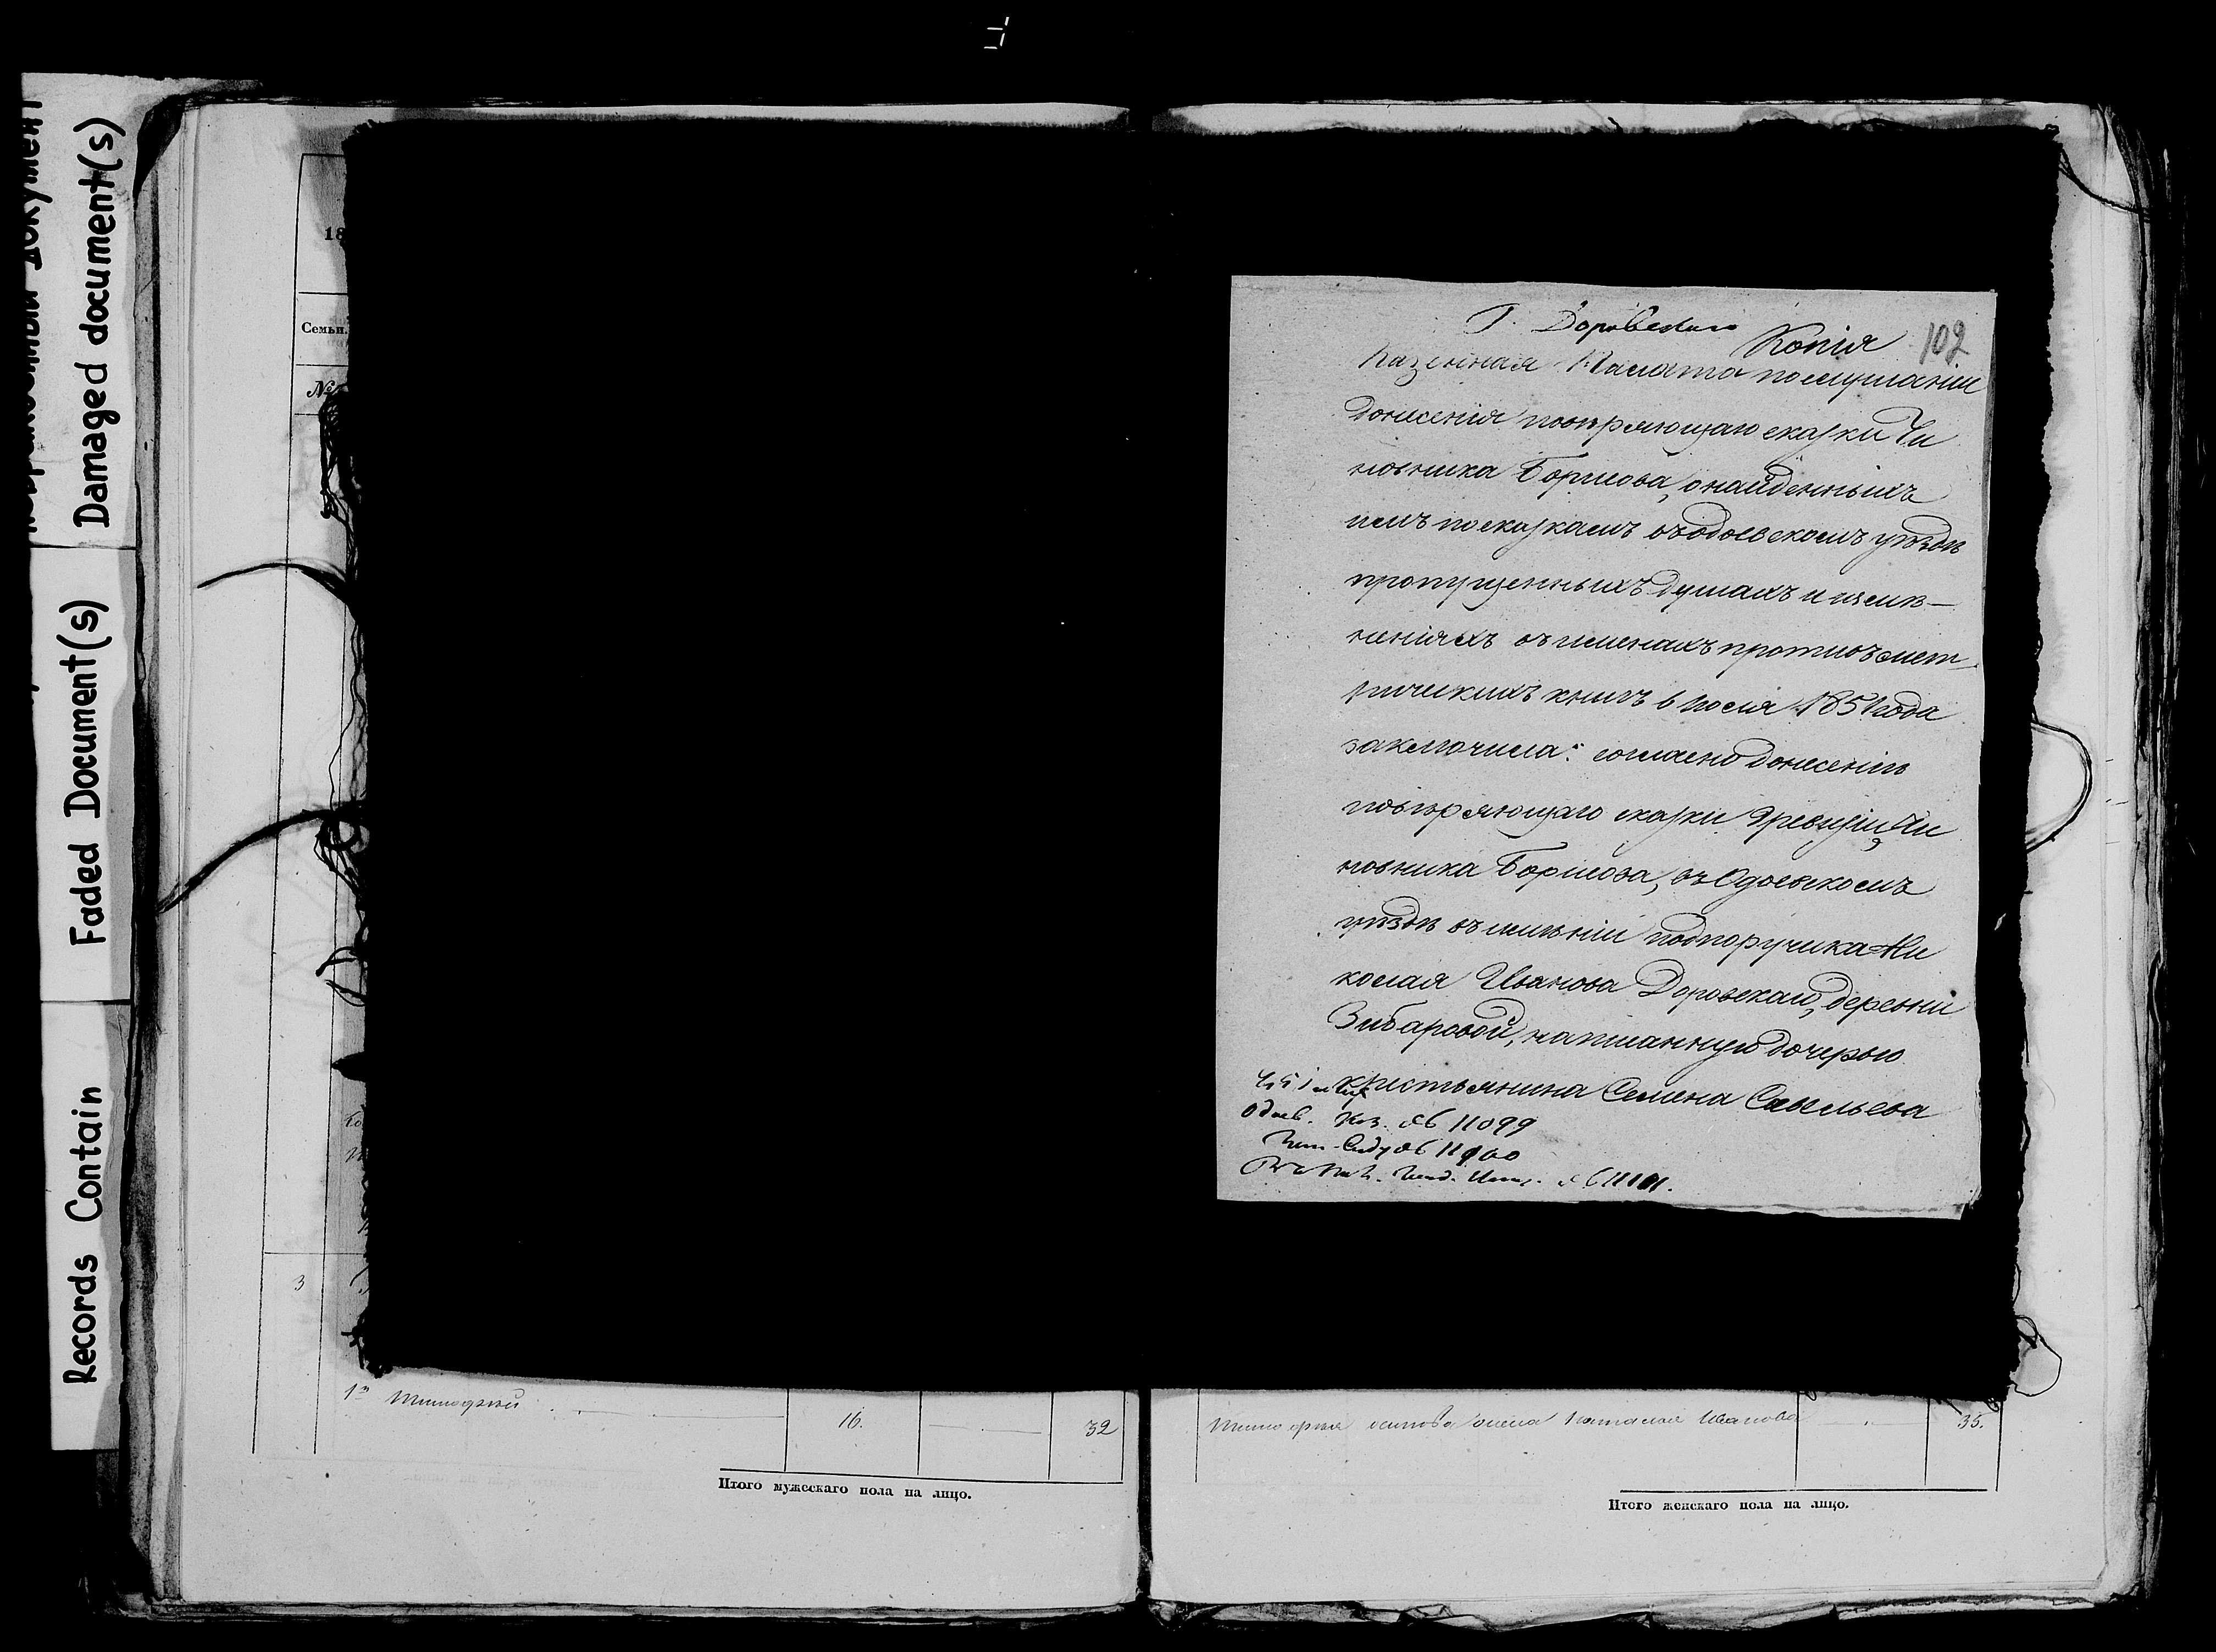 Damaged document(s)
Faded Document(s)
Records Contain
18
Семьи.
№
3
Тимофѣй
16.
32
Итого мужескаго пола на лицо.
Г. Доровскаго
Копія
102
Казенная Палата по слушаніи
донесенія повѣряющаго сказки Чи
новника Борисова, о найденныхъ
имъ по сказкамъ въ Одоевскомъ уѣздѣ
пропущенныхъ душахъ и измѣ-
неніяхъ въ именахъ противъ мет-
рическихъ книгъ 6 Іюля 1851 года
заключила: согласно донесенію
повѣряющаго сказки 9 ревизіи, Чи
новника Борисова, въ Одоевскомъ
уѣздѣ въ имѣніи подпоручика Ни
колая Иванова Доровскаго, деревни
Зибаровой, написанную дочерью
крестьянина Семена Савельева
Одоев. № 11099
№ 11100
№ 11101.
Тимофѣя жена Наталья Иванова
35.
Итого женскаго пола на лицо.